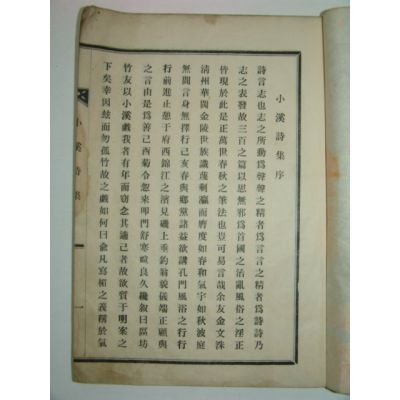 小溪詩集序
詩言志也志之所動爲聲聲之精者爲言言之精者爲詩詩乃
志之表發故三百之篇以思無邪爲首國之治亂風俗之淫正
皆現於此是正萬世春秋之筆法也豈可易言哉余友金文洙
清州華閥金陵世族讖蓮刺瀛而齊度如春和氣宇如秋波庭
無閒言身無擇行己亥春與鄕黨諸益欲講孔門風浴之行行
行前進止憩于府西錦江之濱見磯上垂釣翁貌儀端正顧與
之言由是爲善己酉菊令忽來叩門舒寒暄良久纔敍曰區坊
竹友以小溪戱我者有年而窃念其適己者故欲質于明案之
下矣幸因玆而勿孤竹故之戱如何曰兪凡寫柘之義稱於氣
小溪詩集
一